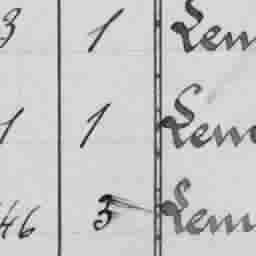 3 1 Lem
1 1 Lem
46 3 Lem